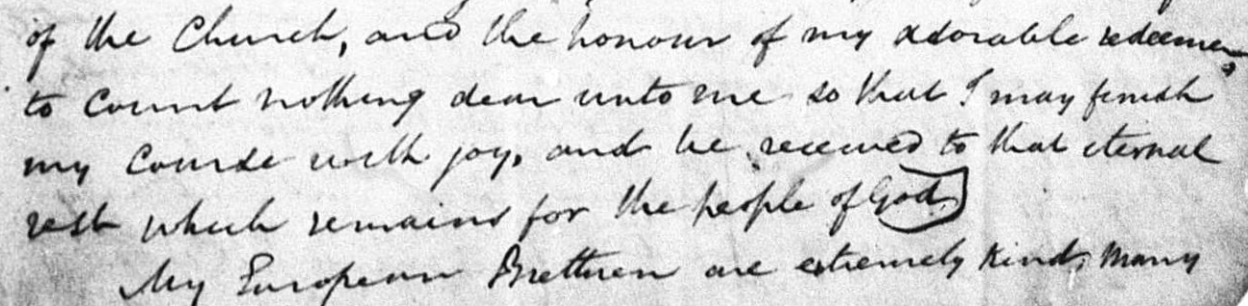 of the Church, and the honour of my adorable redeemer,
to count nothing dear unto me so that I may finish
my course with joy, and be received to that eternal
rest which remains for the people of God.
My European Brethren are extremely kind, many